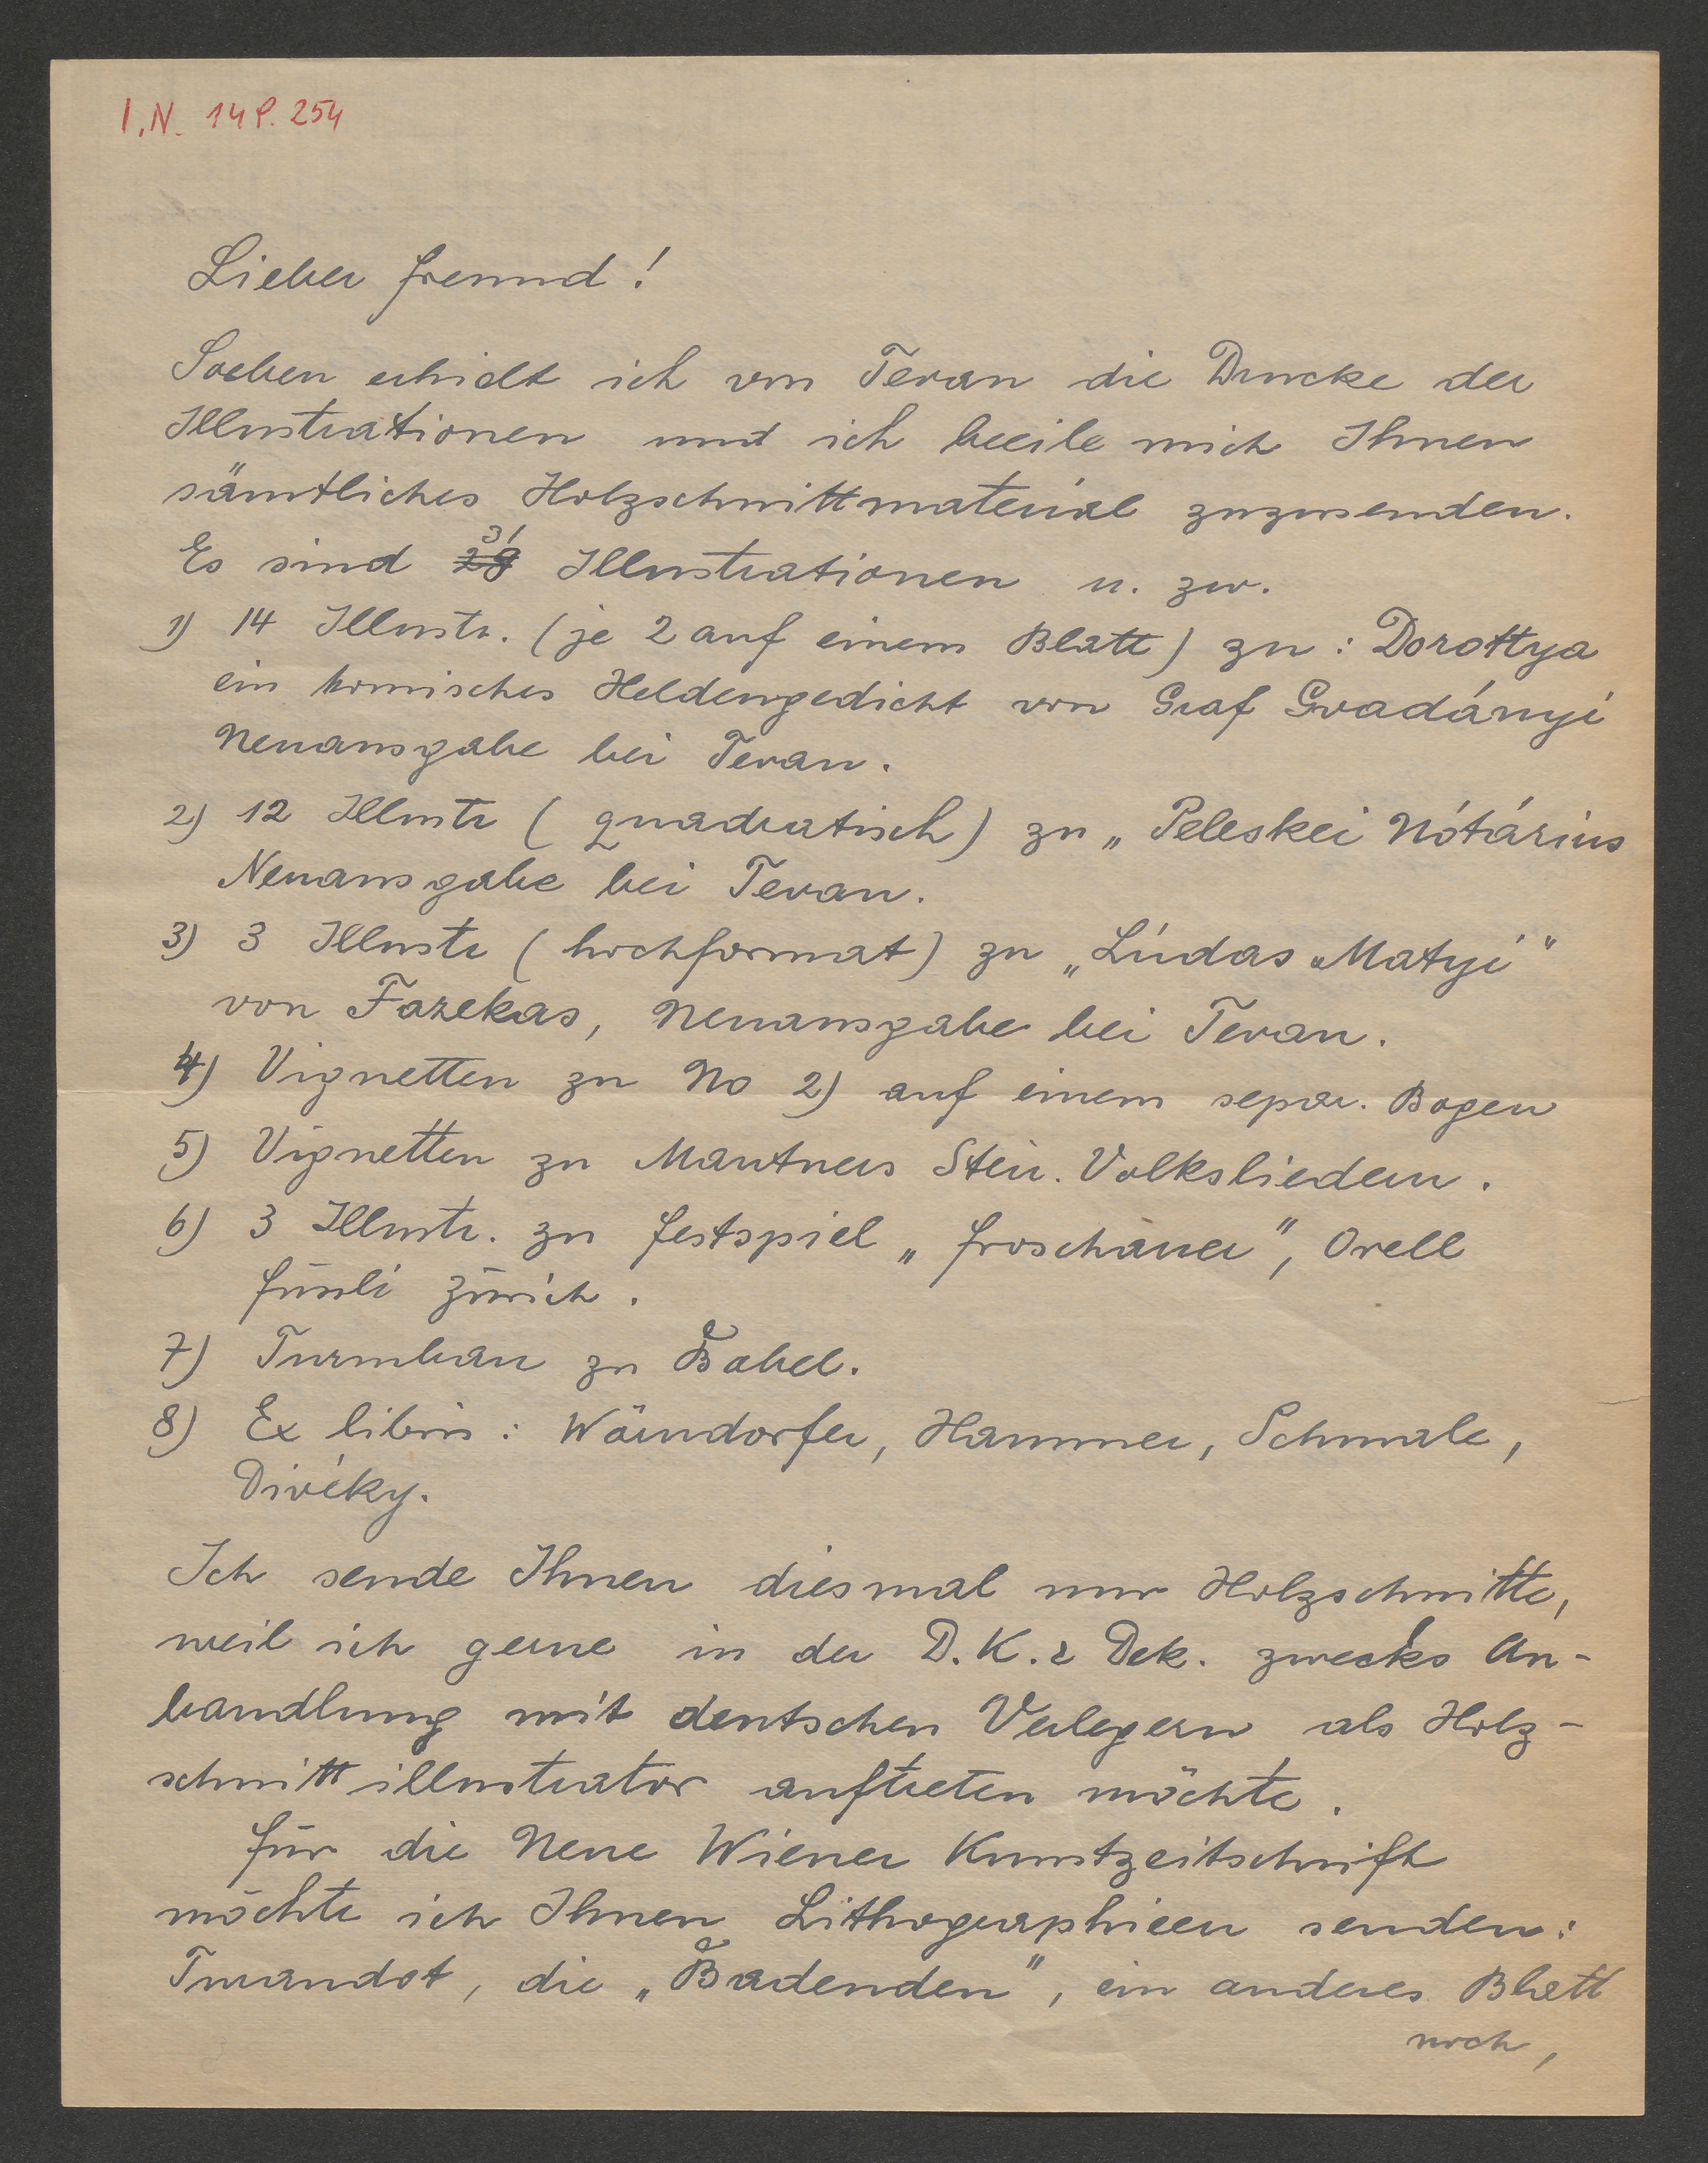 I.N. 14P. 254
Lieber Freund!
Soeben erhielt ich von Tevan die Drucke der
Illustrationen und ich beeile mich Ihnen
sämtliches Holzschnittmaterial zuzusenden.
31
Es sind 28 Illustrationen u. zw.
1) 14 Illustr. (je 2 auf einem Blatt) zu: Dorottya
ein komisches Heldengedicht von Graf Gvadányi
Neuausgabe bei Tevan.
2) 12 Illustr (quadratisch) zu „Peleskei Nótárius
Neuausgabe bei Tevan.
3) 3 Illustr (hochformat) zu „Lúdas Matyi"
von Fazekas, Neuausgabe bei Tevan.
4) Vignetten zu No 2) auf einem separ. Bogen
5) Vignetten zu Mautners Steir. Volksliedern.
6) 3 Illustr. zu Festspiel „Froschauer", Orell
Füssli Zürich.
7) Turmbau zu Babel.
8) Ex libris: Wärndorfer, Hammer, Schmale,
Divéky.
Ich sende Ihnen diesmal nur Holzschnitte,
weil ich gerne in der D. K. & Dek. zwecks An-
bandlung mit deutschen Verlegern als Holz-
schnittillustrator auftreten möchte.
Für die Neue Wiener Kunstzeitschrift
möchte ich Ihnen Lithographieen senden:
Turandot, die „Badenden", ein anderes Blatt
noch,